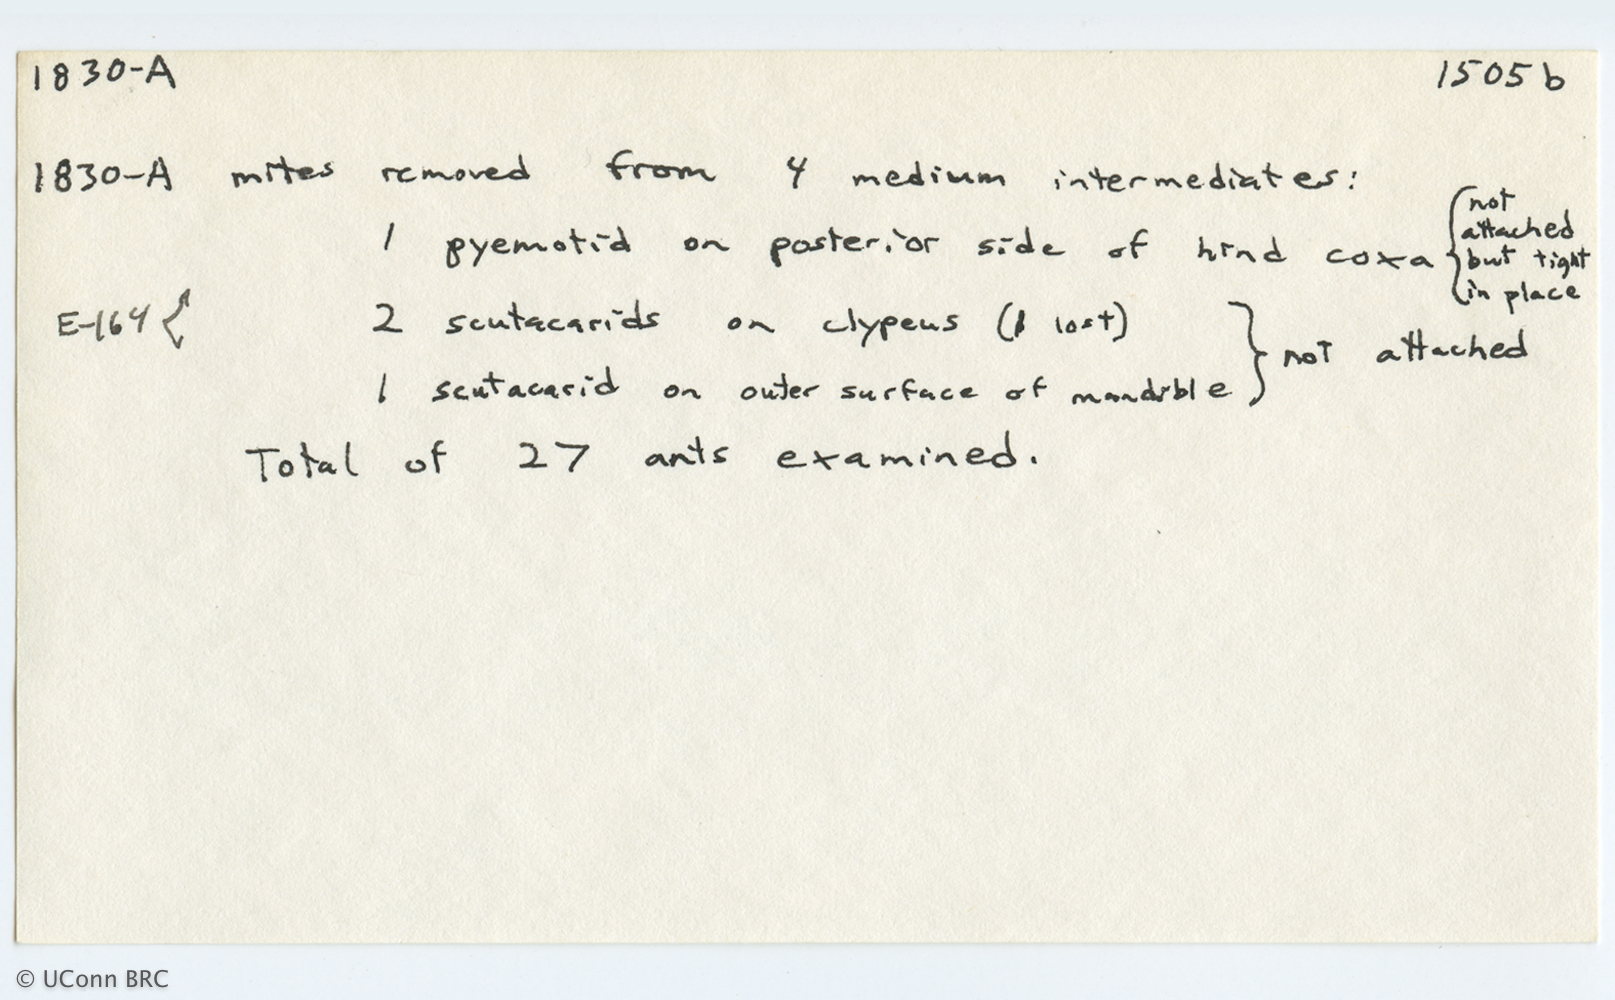 1830-A 1505b
1830-A mites removed from 4 medium intermediates:
1 pyemotid on posterior side of hind coxa { not attached but tight in place
E-164 { 2 scutacarids on clypeus (1 lost)
1 scutacarid on outer surface of mandible } not attached
Total of 27 ants examined.
© UConn BRC